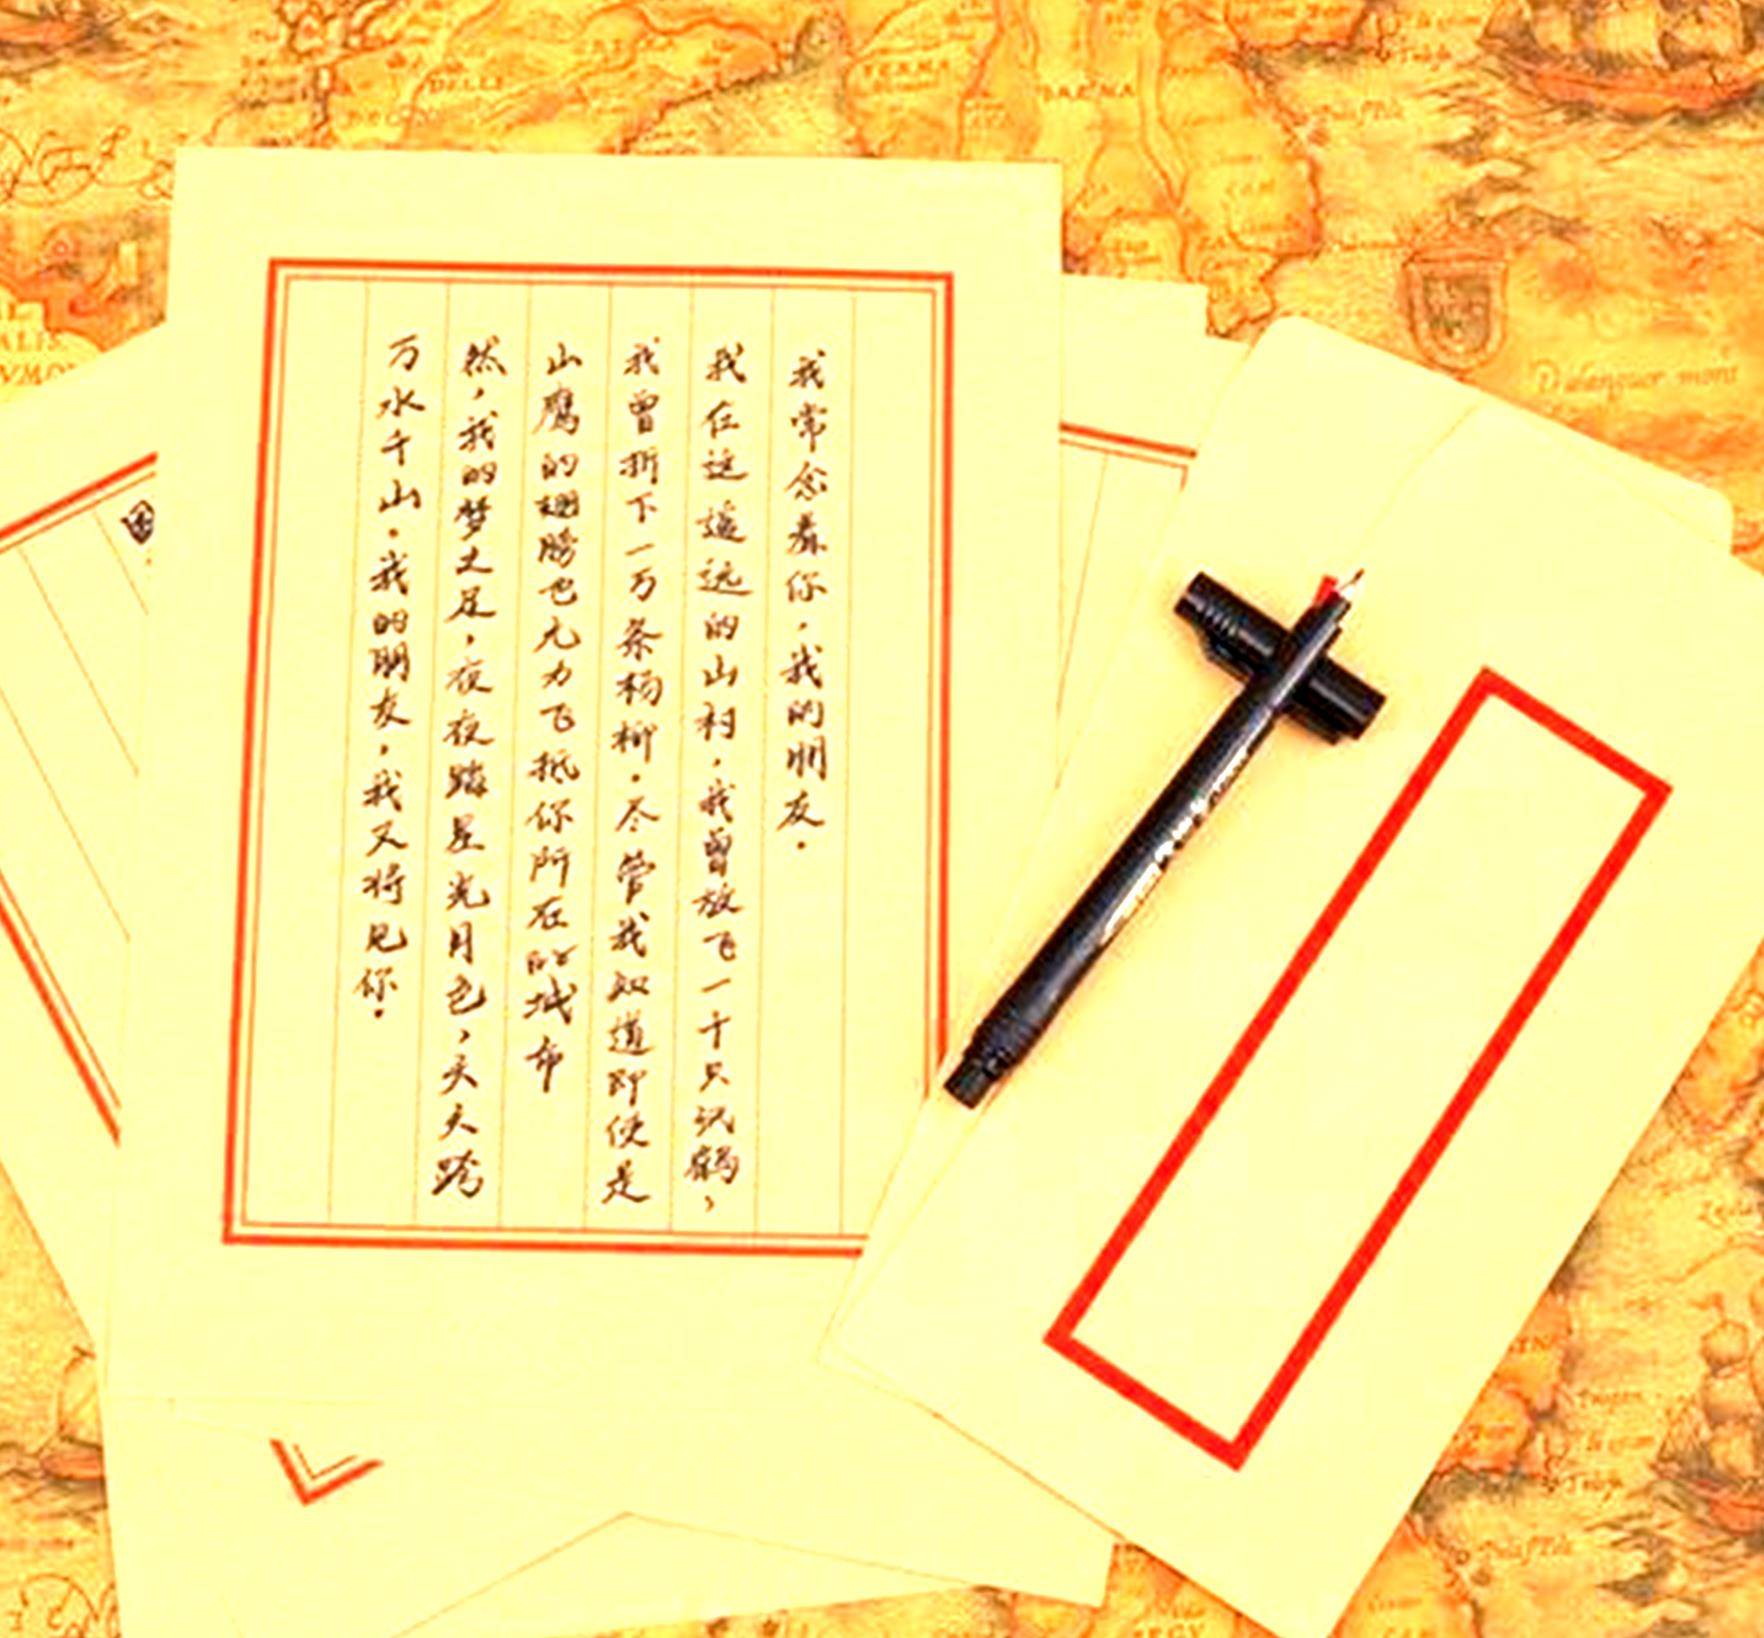 我常念着你，我的朋友。
我在这遥远的山村，我曾放飞一千只纸鹤，
我曾折下一万条杨柳。尽管我知道即使是
山鹰的翅膀也无力飞抵你所在的城市
然，我的梦之足，夜夜踏星光月色，天天跨
万水千山。我的朋友，我又将见你。
DELLI
VERMA
BARMA
ALIS
Dalanguer mons